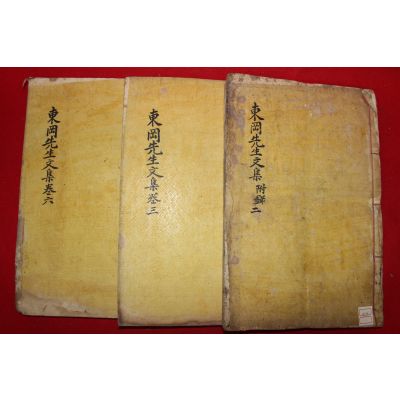 東岡先生文集附錄二
東岡先生文集卷三
東岡先生文集卷六